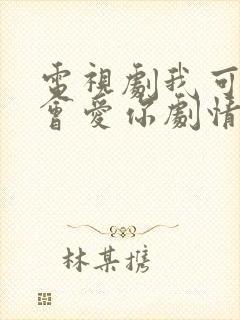 電視劇我可
會愛你劇情
林某携